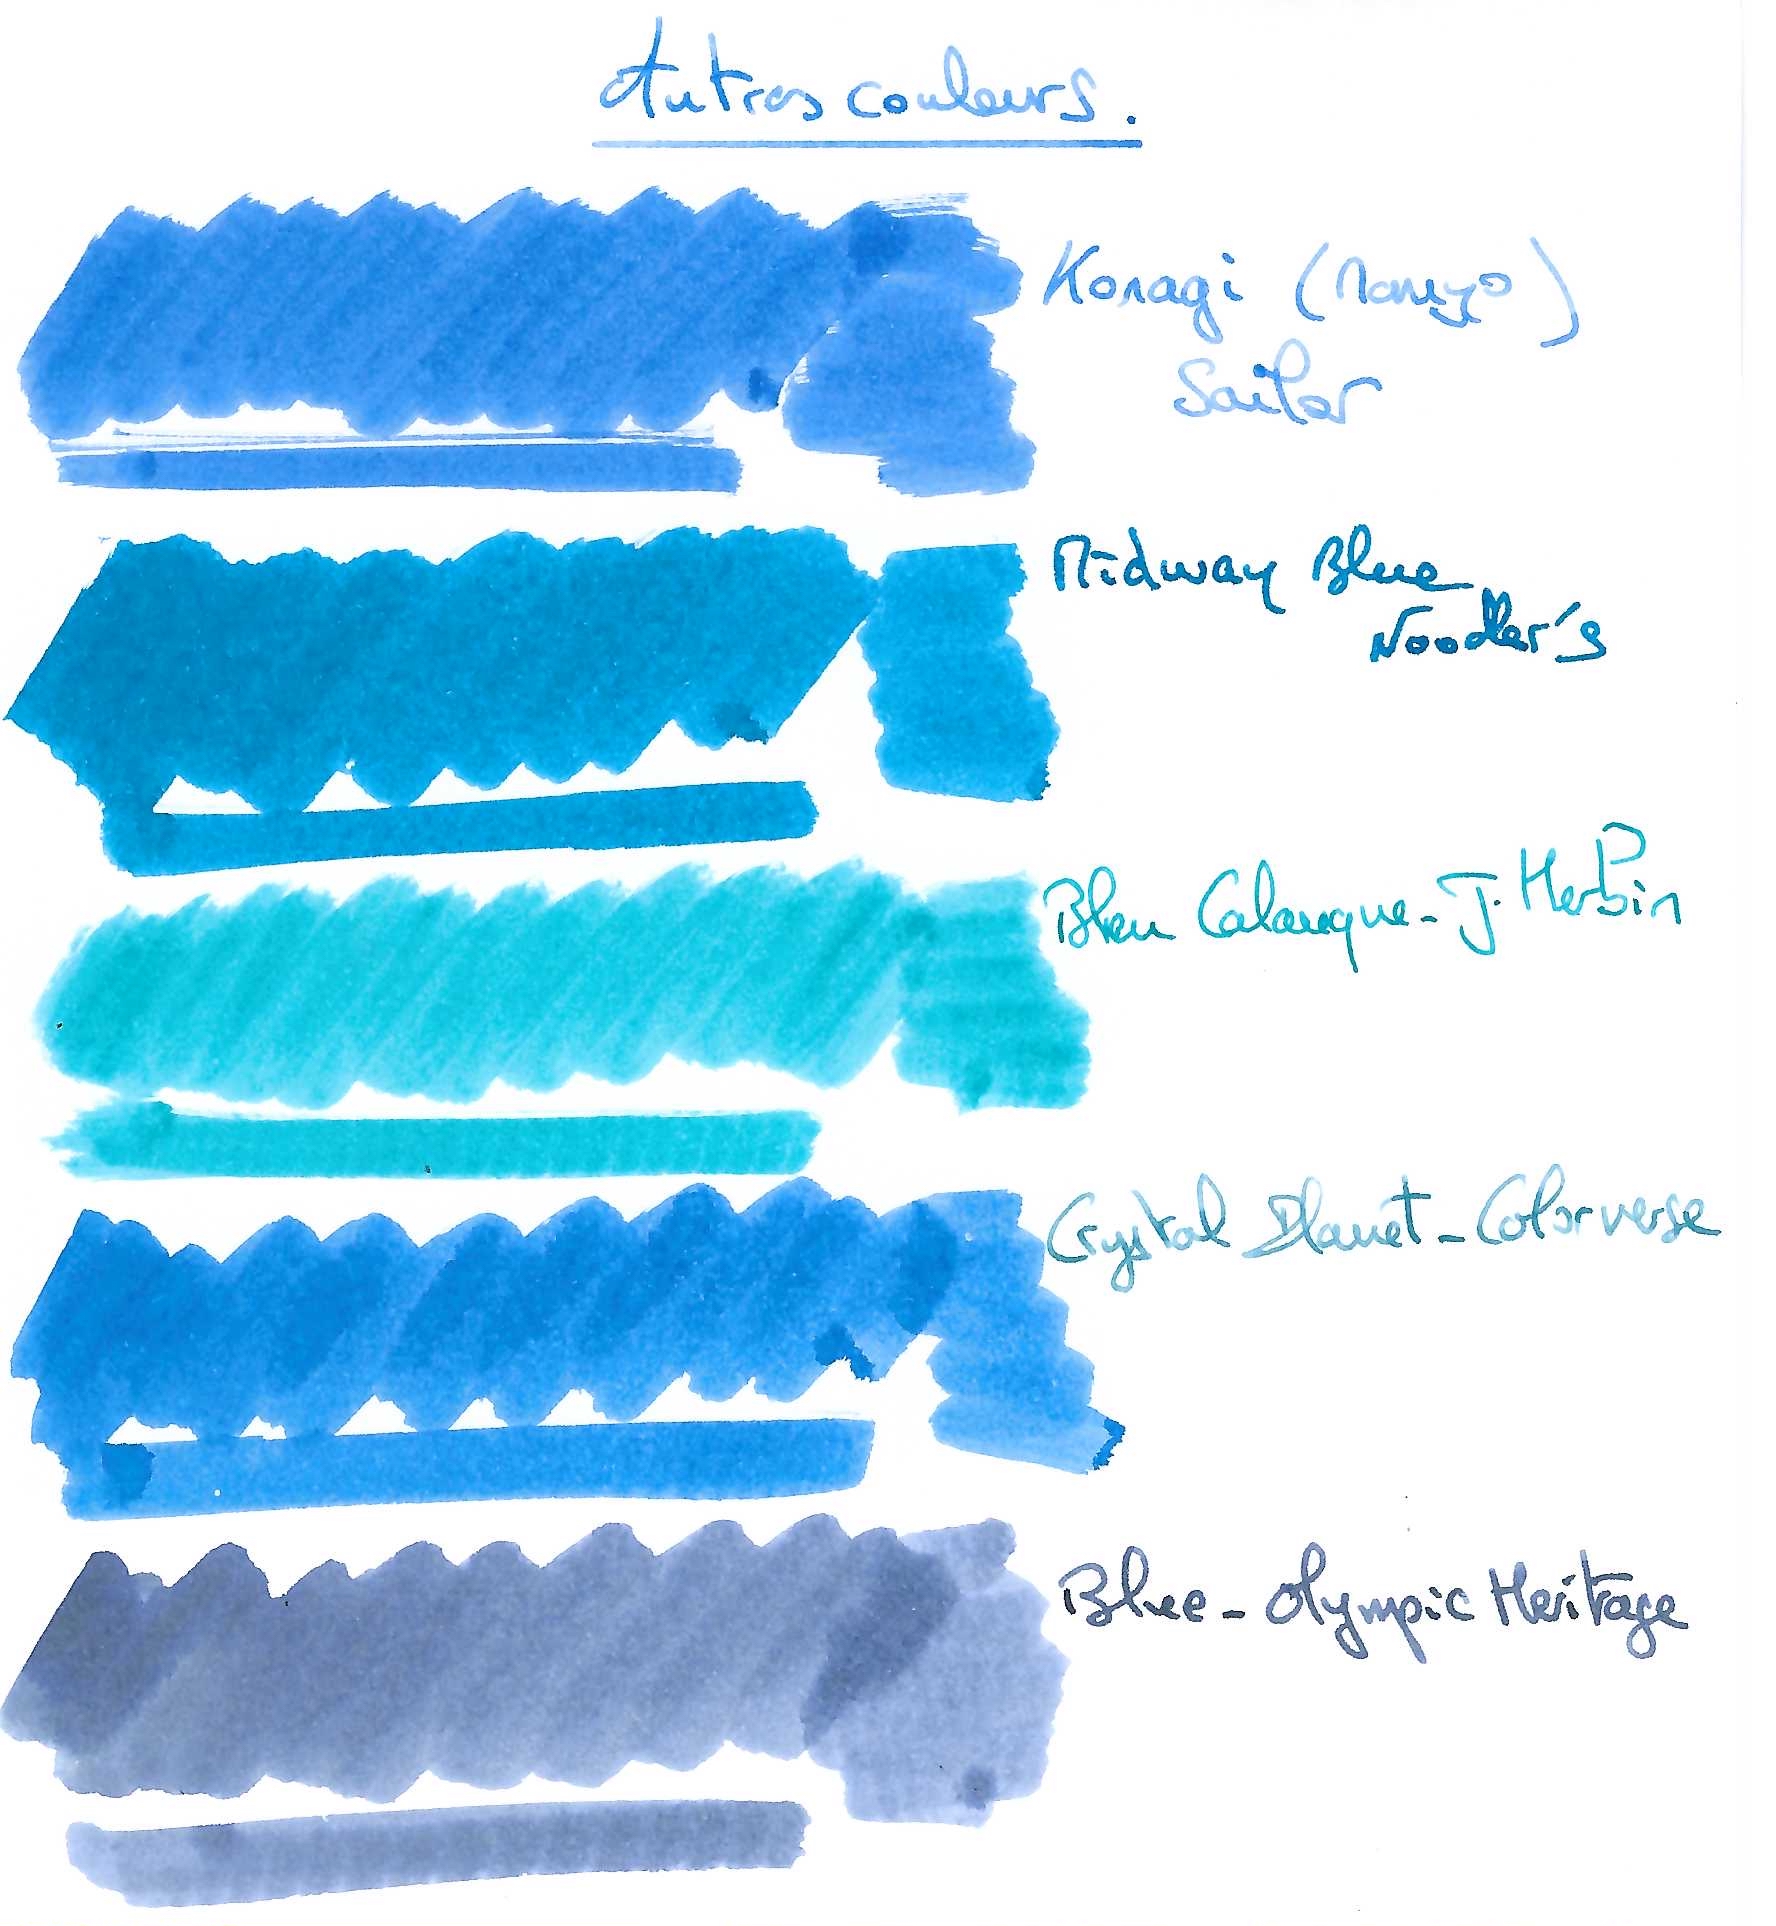 Autres couleurs.
Konagi (Manyo)
Sailor
Midway Blue
Noodler's
Bleu Calanque - J. Herbin
Crystal Planet - Colorverse
Blue - Olympic Heritage